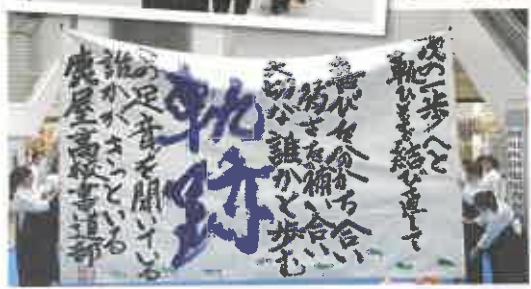 次の一歩へと
靴ひもを結び直して
喜びを分かち合い
弱さを補い合い
大切な誰かと歩む
軌跡
この足音を聞いている
誰かがきっといる
鹿屋高校書道部